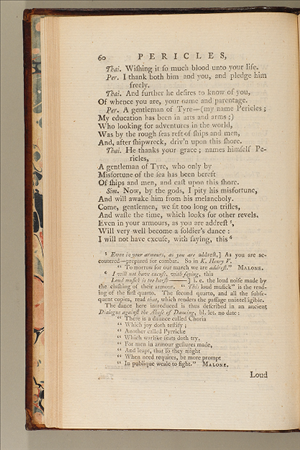 60 PERICLES,
Thai. Wishing it so much blood unto your life.
Per. I thank both him and you, and pledge him
freely.
Thai. And further he desires to know of you,
Of whence you are, your name and parentage.
Per. A gentleman of Tyre—(my name Pericles;
My education has been in arts and arms;)
Who looking for adventures in the world,
Was by the rough seas reft of ships and men,
And, after shipwreck, driv'n upon this shore.
Thai. He thanks your grace; names himself Pe-
ricles,
A gentleman of Tyre, who only by
Misfortune of the sea has been bereft
Of ships and men, and cast upon this shore.
Sim. Now, by the gods, I pity his misfortune,
And will awake him from his melancholy.
Come, gentlemen, we sit too long on trifles,
And waste the time, which looks for other revels.
Even in your armours, as you are addrest ⁵,
Will very well become a soldier's dance:
I will not have excuse, with saying, this ⁶
⁵ Even in your armours, as you are addrest,] As you are ac-
coutered—prepared for combat. So in K. Henry V.
" To morrow for our march we are addrest." MALONE.
⁶ I will not have excuse, with saying, this
Loud musick is too harsh—] i. e. the loud noise made by
the clashing of their armour. " This loud musick" is the read-
ing of the first quarto. The second quarto, and all the subse-
quent copies, read that, which renders the passage unintelligible.
The dance here introduced is thus described in an ancient
Dialogue against the Abuse of Dancing, bl. let. no date:
" There is a dance called Choria
" Which joy doth testify;
" Another called Pyrricke
" Which warlike feats doth try.
" For men in armour gestures made,
" And leapt, that so they might
" When need requires, be more prompt
" In publique weale to fight." MALONE.
Loud